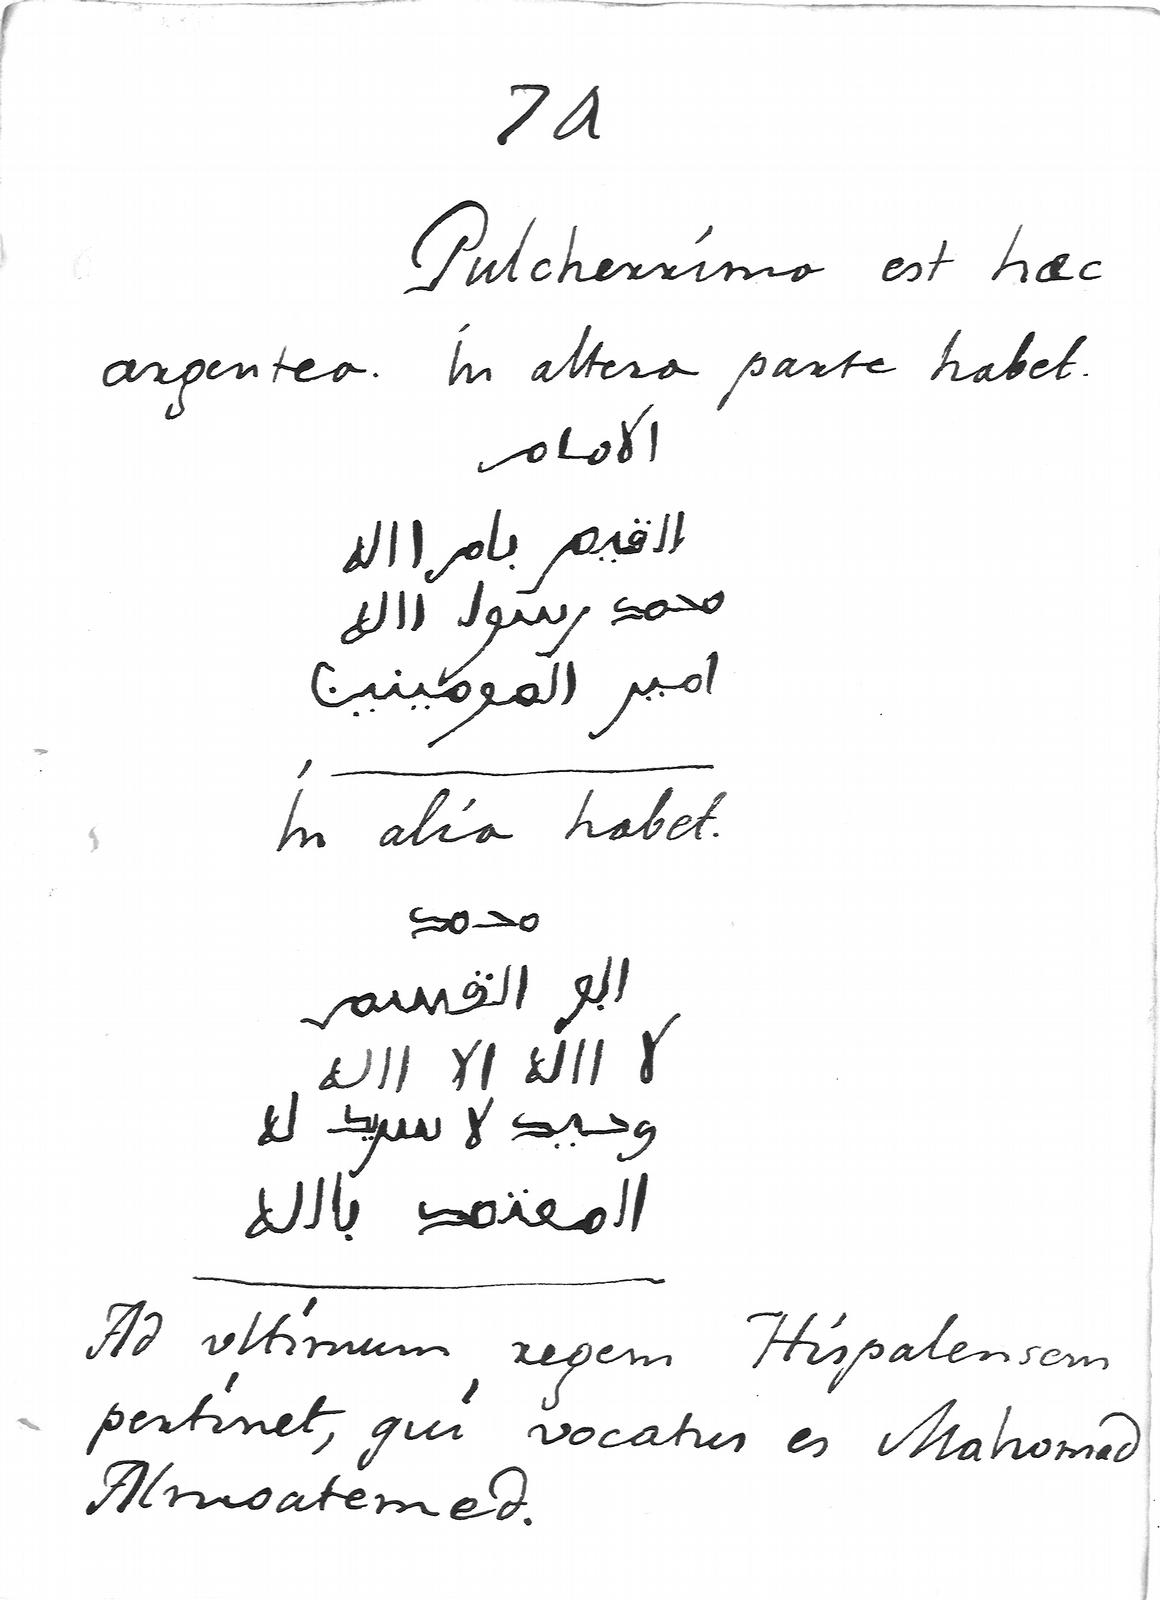 7a
Pulcherrima est hæc
argentea. In altera parte habet.
الامام
القيم بامر االله
محمد رسول االله
امير المومينين
In alia habet.
محمد
ابو القسم
لا االله الا االله
وحيد لا سريد له
المعتمد باالله
Ad ultimum regem Hispalensem
pertinet, qui vocatus es Mahomad
Almoatemed.